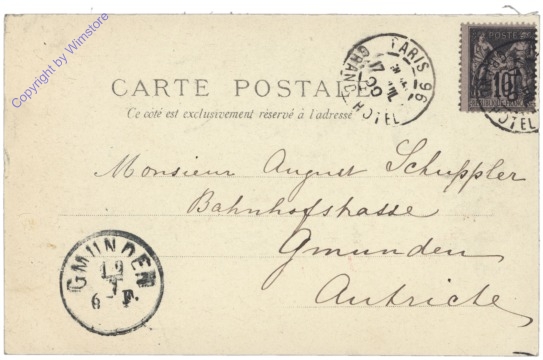 Copyright by Wimstore
CARTE POSTALE
Ce coté est exclusivement réservé à l'adresse
PARIS 96
17
00
GRAND HOTEL
POSTE
10
HOTEL
Monsieur August Schuppler
Bahnhofstrasse
Gmunden
Autriche
GMUNDEN
12
7
6 F.